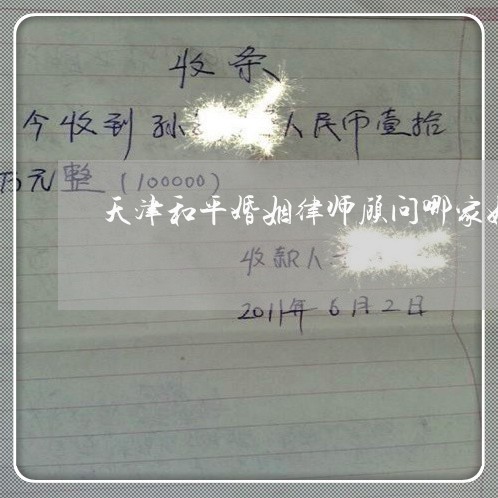 收条
今收到孙 人民币壹拾
万元整(100000)
天津和平婚姻律师顾问哪家好
收款人
2011年6月2日